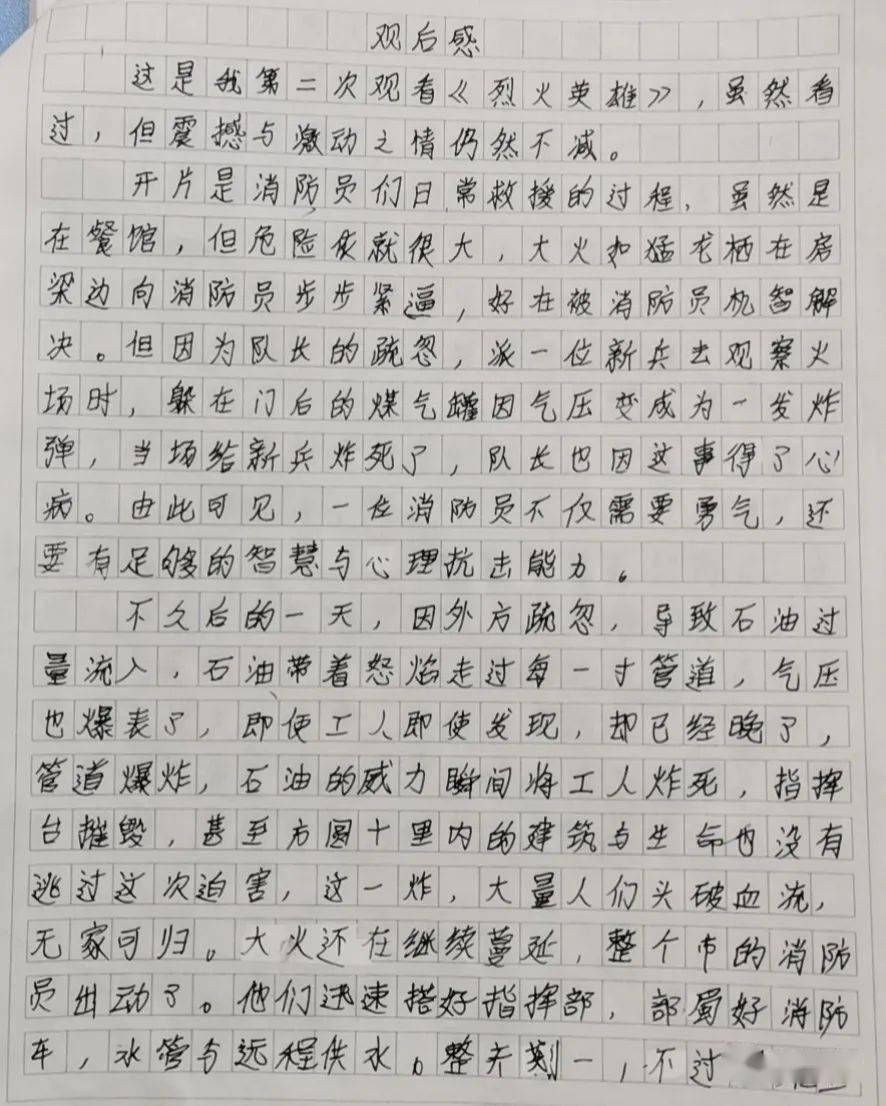 观后感
这是我第二次观看《烈火英雄》，虽然看
过，但震撼与激动之情仍然不减。
开片是消防员们日常救援的过程，虽然是
在餐馆，但危险依就很大，大火如猛龙栖在房
梁边向消防员步步紧逼，好在被消防员机智解
决。但因为队长的疏忽，派一位新兵去观察火
场时，躲在门后的煤气罐因气压变成为一发炸
弹，当场给新兵炸死了，队长也因这事得了心
病。由此可见，一位消防员不仅需要勇气，还
要有足够的智慧与心理抗击能力。
不久后的一天，因外方疏忽，导致石油过
量流入，石油带着怒焰走过每一寸管道，气压
也爆表了，即使工人即使发现，却已经晚了，
管道爆炸，石油的威力瞬间将工人炸死，指挥
台摧毁，甚至方圆十里内的建筑与生命也没有
逃过这次迫害，这一炸，大量人们头破血流，
无家可归。大火还在继续蔓延，整个市的消防
员出动了。他们迅速搭好指挥部，部蜀好消防
车，水管与远程供水。整齐划一，不过